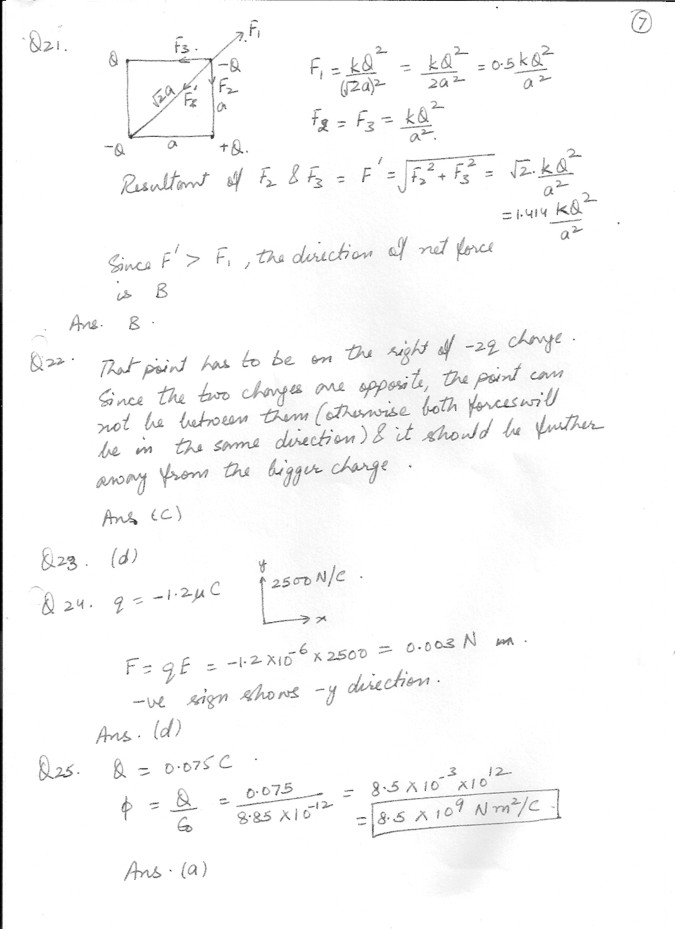 7
Q21.
F₁
F₃.
Q
-Q
F₂
√2a
F'
a
-Q
a
+Q.
F₁ = kQ²/(√2a)² = kQ²/2a² = 0.5 kQ²/a²
F₂ = F₃ = kQ²/a².
Resultant of F₂ & F₃ = F' = √F₂² + F₃² = √2. kQ²/a²
= 1.414 kQ²/a².
Since F' > F₁, the direction of net force
is B
Ans. B.
Q22. That point has to be on the right of -2q charge.
Since the two charges are opposite, the point can
not be between them (otherwise both forces will
be in the same direction) & it should be further
away from the bigger charge.
Ans (C)
Q23. (d)
Q24. q = -1.2 μC
y
2500 N/C.
x
F = qE = -1.2 × 10⁻⁶ × 2500 = 0.003 N
-ve sign shows -y direction.
Ans. (d)
Q25. Q = 0.075 C.
φ = Q/ϵ₀ = 0.075/8.85 × 10⁻¹² = 8.5 × 10⁻³ × 10¹²
= 8.5 × 10⁹ Nm²/C.
Ans. (a)